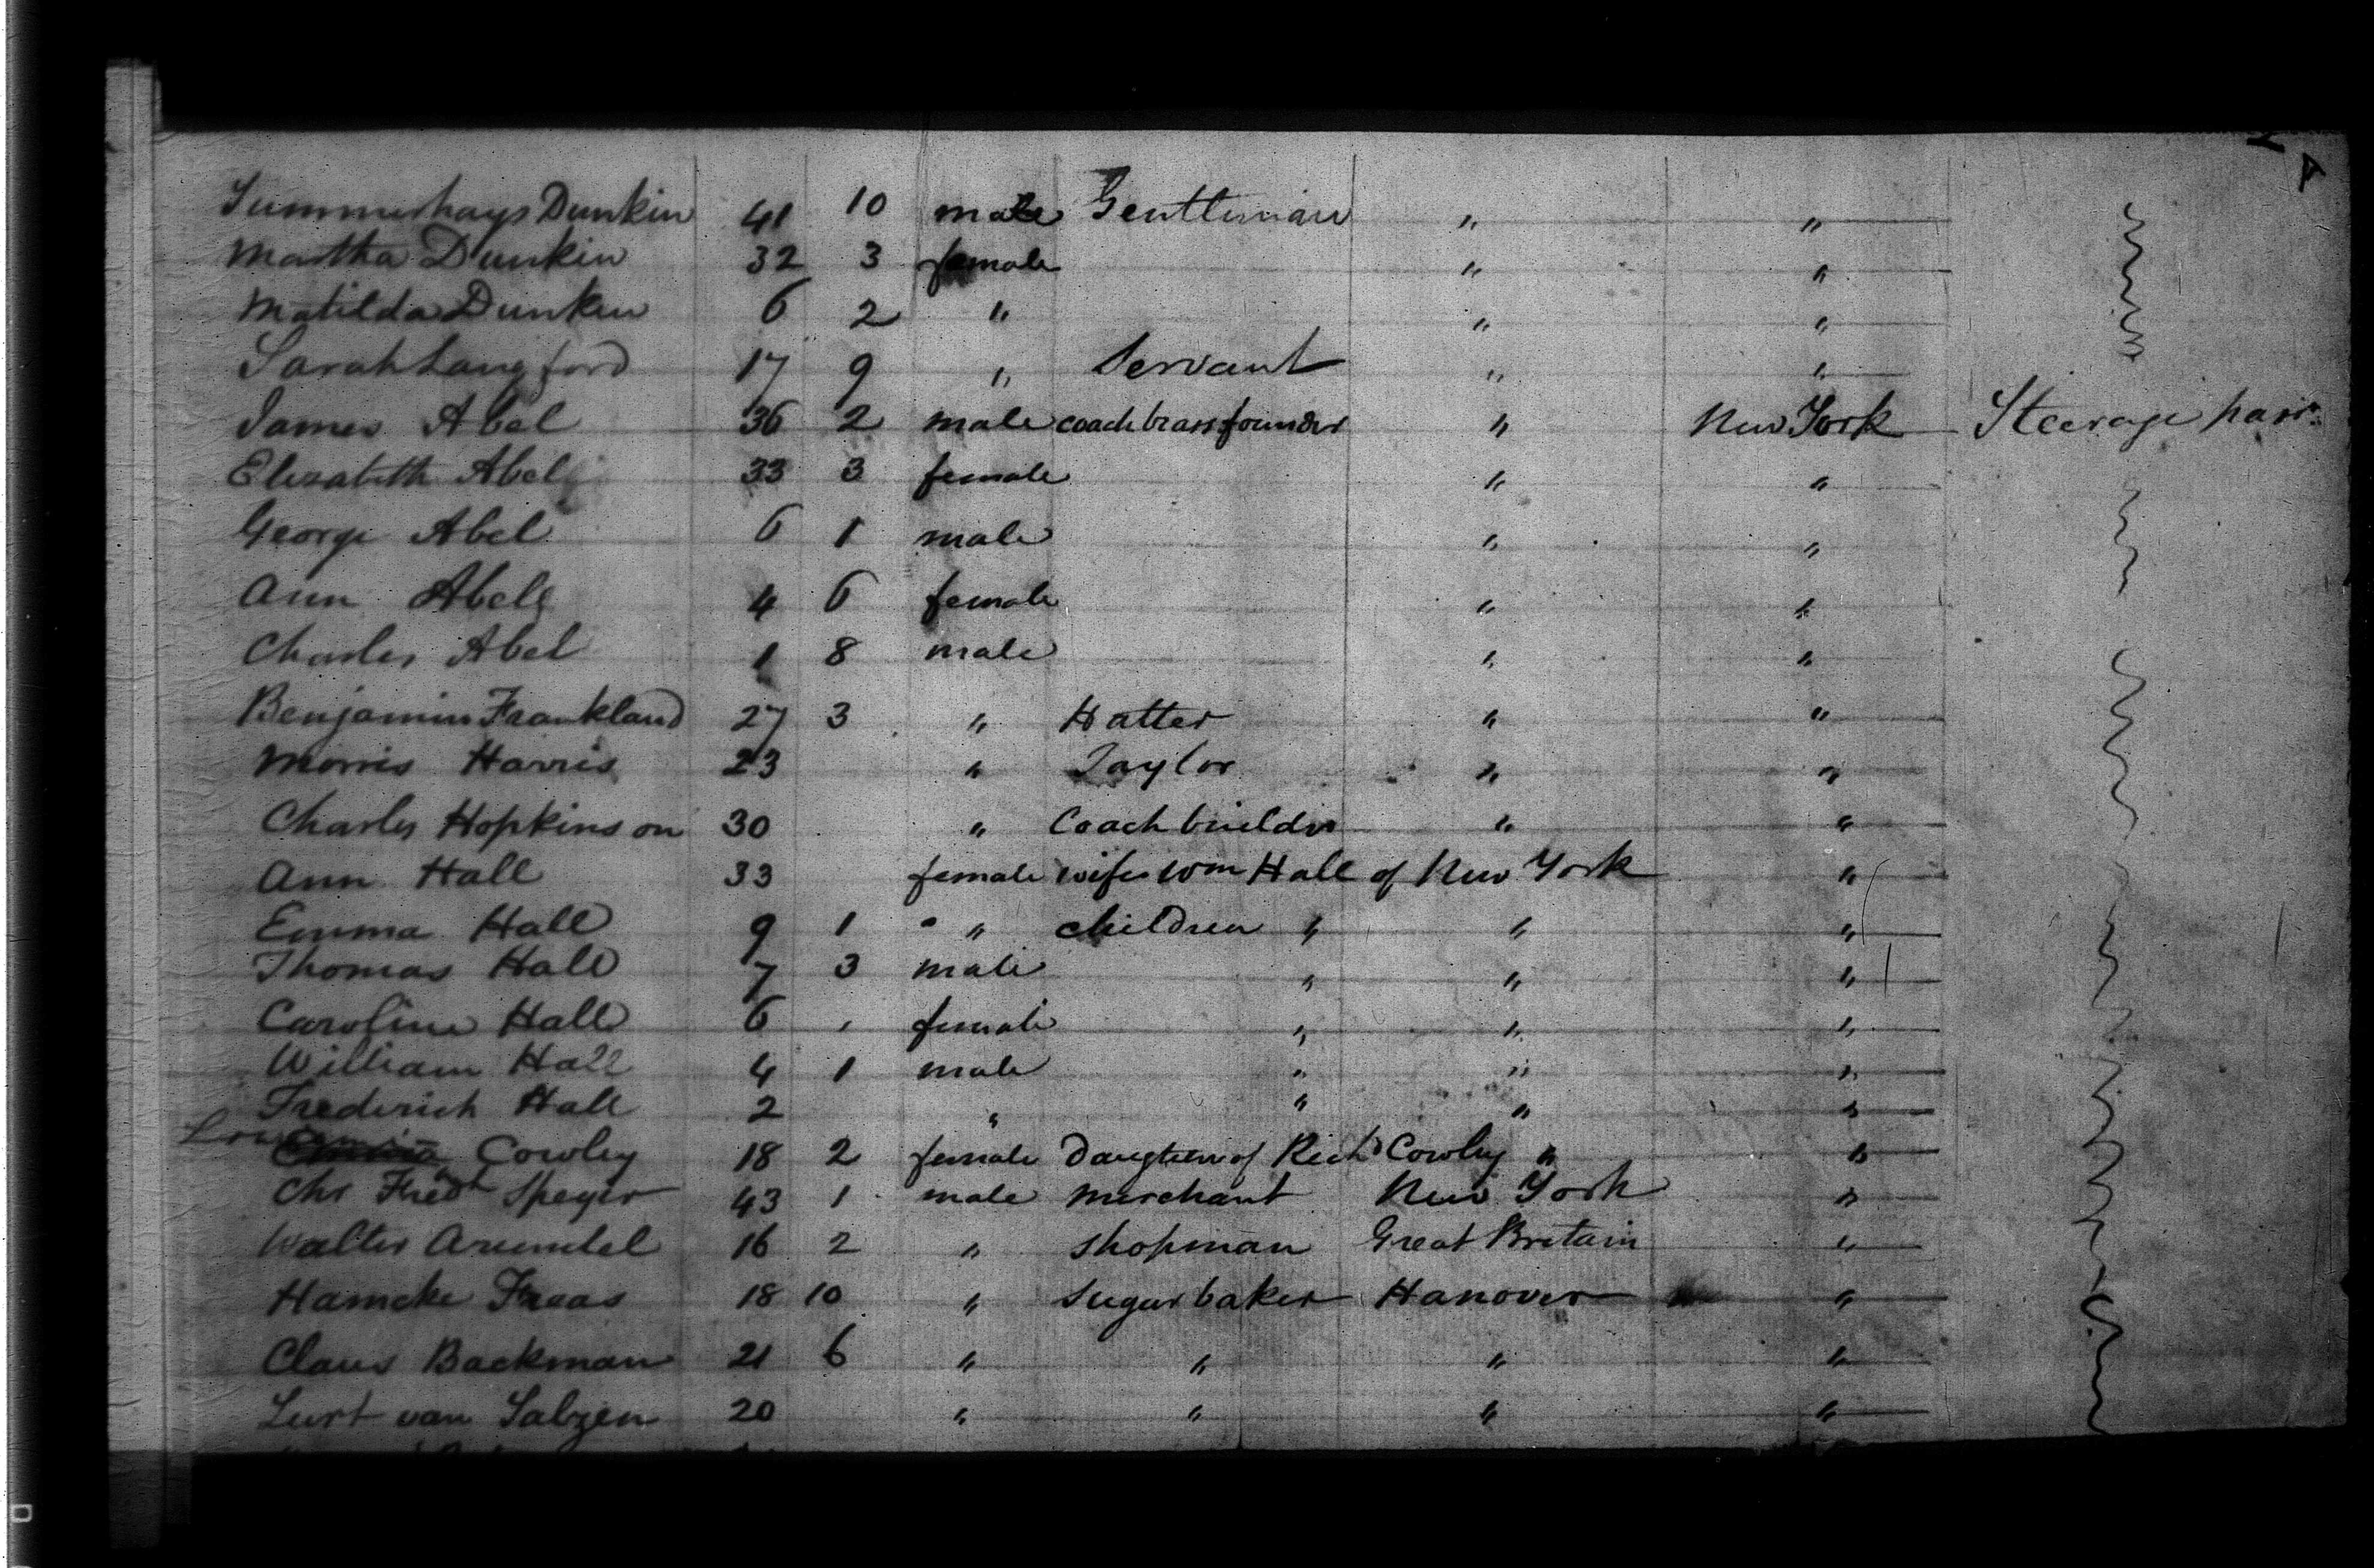 Summerhays Dunkin 41 10 male Gentleman " "
Martha Dunkin 32 3 female " "
Matilda Dunkin 6 2 " " "
Sarah Langford 17 9 " Servant " "
James Abel 36 2 male coach brass founder " New York Steerage pass.
Elizabeth Abel 33 3 female " "
George Abel 6 1 male " "
Ann Abel 4 6 female " "
Charles Abel 1 8 male " "
Benjamin Frankland 27 3 " Hatter " "
Morris Harris 23 " Taylor " "
Charles Hopkinson 30 " Coach builder " "
Ann Hall 33 female wife Wm Hall of New York "
Emma Hall 9 1 " children " " "
Thomas Hall 7 3 male " " "
Caroline Hall 6 female " " "
William Hall 4 1 male " " "
Frederich Hall 2 " " " "
Cowley 18 2 female Daughter of Richd Cowley " "
Chr Fredk Speyer 43 1 male merchant New York "
Walter Arundel 16 2 " shopman Great Britain "
Hamcke Freas 18 10 " Sugar baker Hanover "
Claus Backman 21 6 " " " "
Lurt van Salzen 20 " " " "